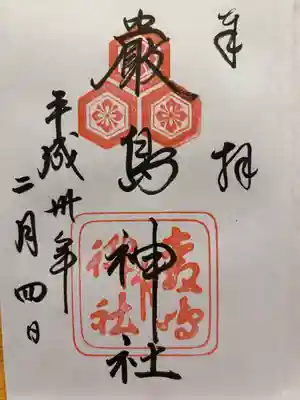 奉拝
厳島神社
平成卅年
二月四日
嚴島
神社